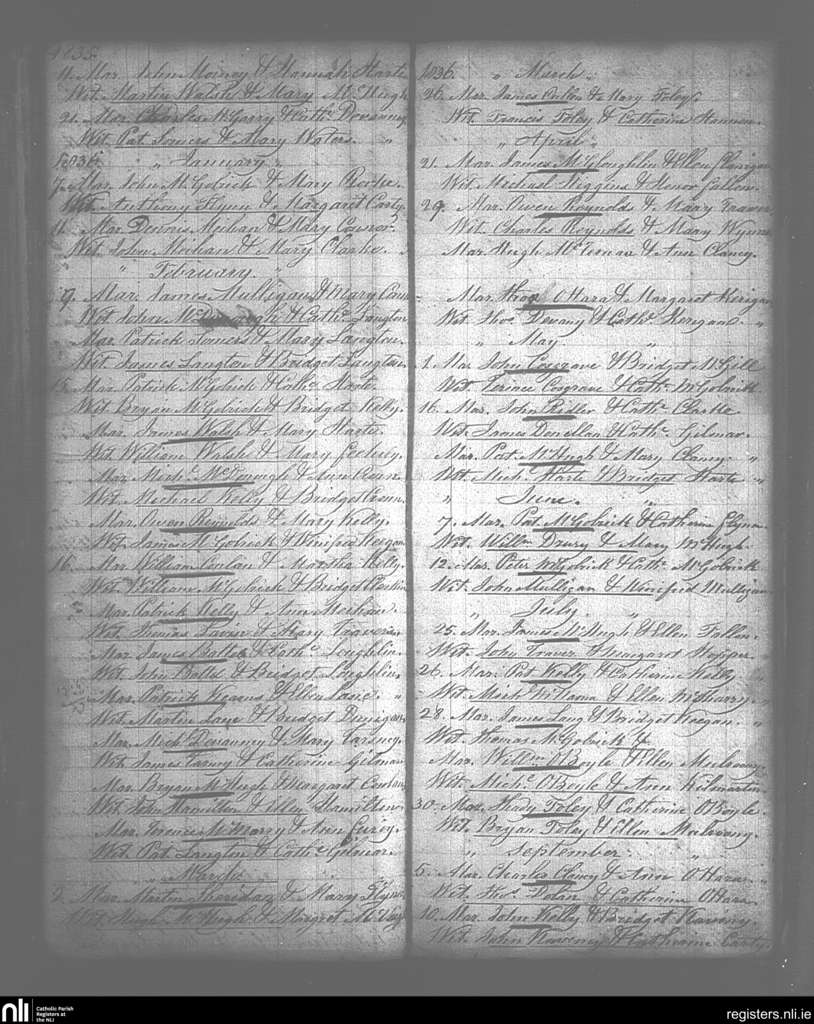 1835
Mar. John & Hannah Harte
Wit. Martin Walsh & Mary McHugh
21. Mar. Charles McGarry & Cathe. Devanny
Wit. Pat Somers & Mary Waters. "
1836. " January "
7. Mar. John McGolrick & Mary Rorke.
Wit. Anthony Flynn & Margaret Carty
11. Mar. Dennis Meehan & Mary Connor.
Wit. John Meehan & Mary Clarke.
" February. "
9. Mar. James Mulligan & Mary
Wit. John & Cathe. Langton
Mar. Patrick Somers & Mary Langton.
Wit. James Langton & Bridget Langton
15. Mar. Patrick McGolrick & Cathe.
Wit. Bryan McGolrick & Bridget Kelly.
Mar. James Walsh & Mary Harte.
Wit. William Walsh & Mary
Mar. Michl. McDonough & Ann
Wit. Michael Kelly & Bridget
Mar. Owen Reynolds & Mary Kelly.
Wit. James McGolrick & Winifred Keegan
16. Mar. William Conlan & Martha Kelly.
Wit. William McGolrick & Bridget
Mar. Patrick Kelly & Ann Meehan
Wit. Thomas & Mary
Mar. James Battle & Cathe. Loughlin.
Wit. John Battle & Bridget Loughlin
Mar. Patrick & Ellen "
Wit. Martin Lang & Bridget
Mar. Michl. Devanney & Mary
Wit. James & Catherine Gilmar
Mar. Bryan McHugh & Margaret
Wit. John Hamilton & Ellen Hamilton
Mar. Terence & Ann
Wit. Pat Langton & Cathe. Gilmar.
" March "
2. Mar. Martin Sheridan & Mary Flynn
Wit. Hugh McHugh & Margret
1836. " March "
26. Mar. James & Mary Foley.
Wit. Francis Foley & Catherine Hannon.
" April "
21. Mar. James McGloughlin & Ellen Flanigan
Wit. Michael Higgins & Honor
29. Mar. Owen Reynolds & Mary Traver
Wit. Charles Reynolds & Mary Wynne
Mar. Hugh McTernan & Ann Clancy.
Mar. Thos. OHara & Margaret Kerigan
Wit. Thos. Devany & Cathe. Kerigan. "
" May "
1. Mar. John Cosgrave & Bridget McGill
Wit. Terince Cosgrave & Cathe. McGolrick
16. Mar. John & Cathe. Clarke
Wit. James Donellan & Cathe. Gilmar.
Mar. Pat McHugh & Mary Clancy "
Wit. Michl. Harte & Bridget Harte "
" June. "
7. Mar. Pat McGolrick & Catherine Flynn
Wit. Willm. Drury & Mary McHugh.
12. Mar. Peter McGolrick & Cathe. McGolrick
Wit. John Mulligan & Winifred Mulligan
" July "
25. Mar. James McHugh & Ellen Fallon.
Wit. John Traver & Margaret
26. Mar. Pat Kelly & Catherine Kelly "
Wit. Michl. & Ellen McSharry. "
28. Mar. James Lang & Bridget Keegan. "
Wit. Thomas McGolrick &
Mar. Willm. OBoyle & Ellen Mulvany
Wit. Michl. OBoyle & Ann Kilmartin
30. Mar. Thady Foley & Catherine OBoyle.
Wit. Bryan Foley & Ellen Mulvany.
" September. "
5. Mar. Charles Clancy & Ann OHara
Wit. Thos. Dolan & Catherine OHara
10. Mar. John Kelly & Bridget Kaveny.
Wit. John Kaveney & Catherine Carty.
nli
Catholic Parish
Registers at
the NLI
registers.nli.ie